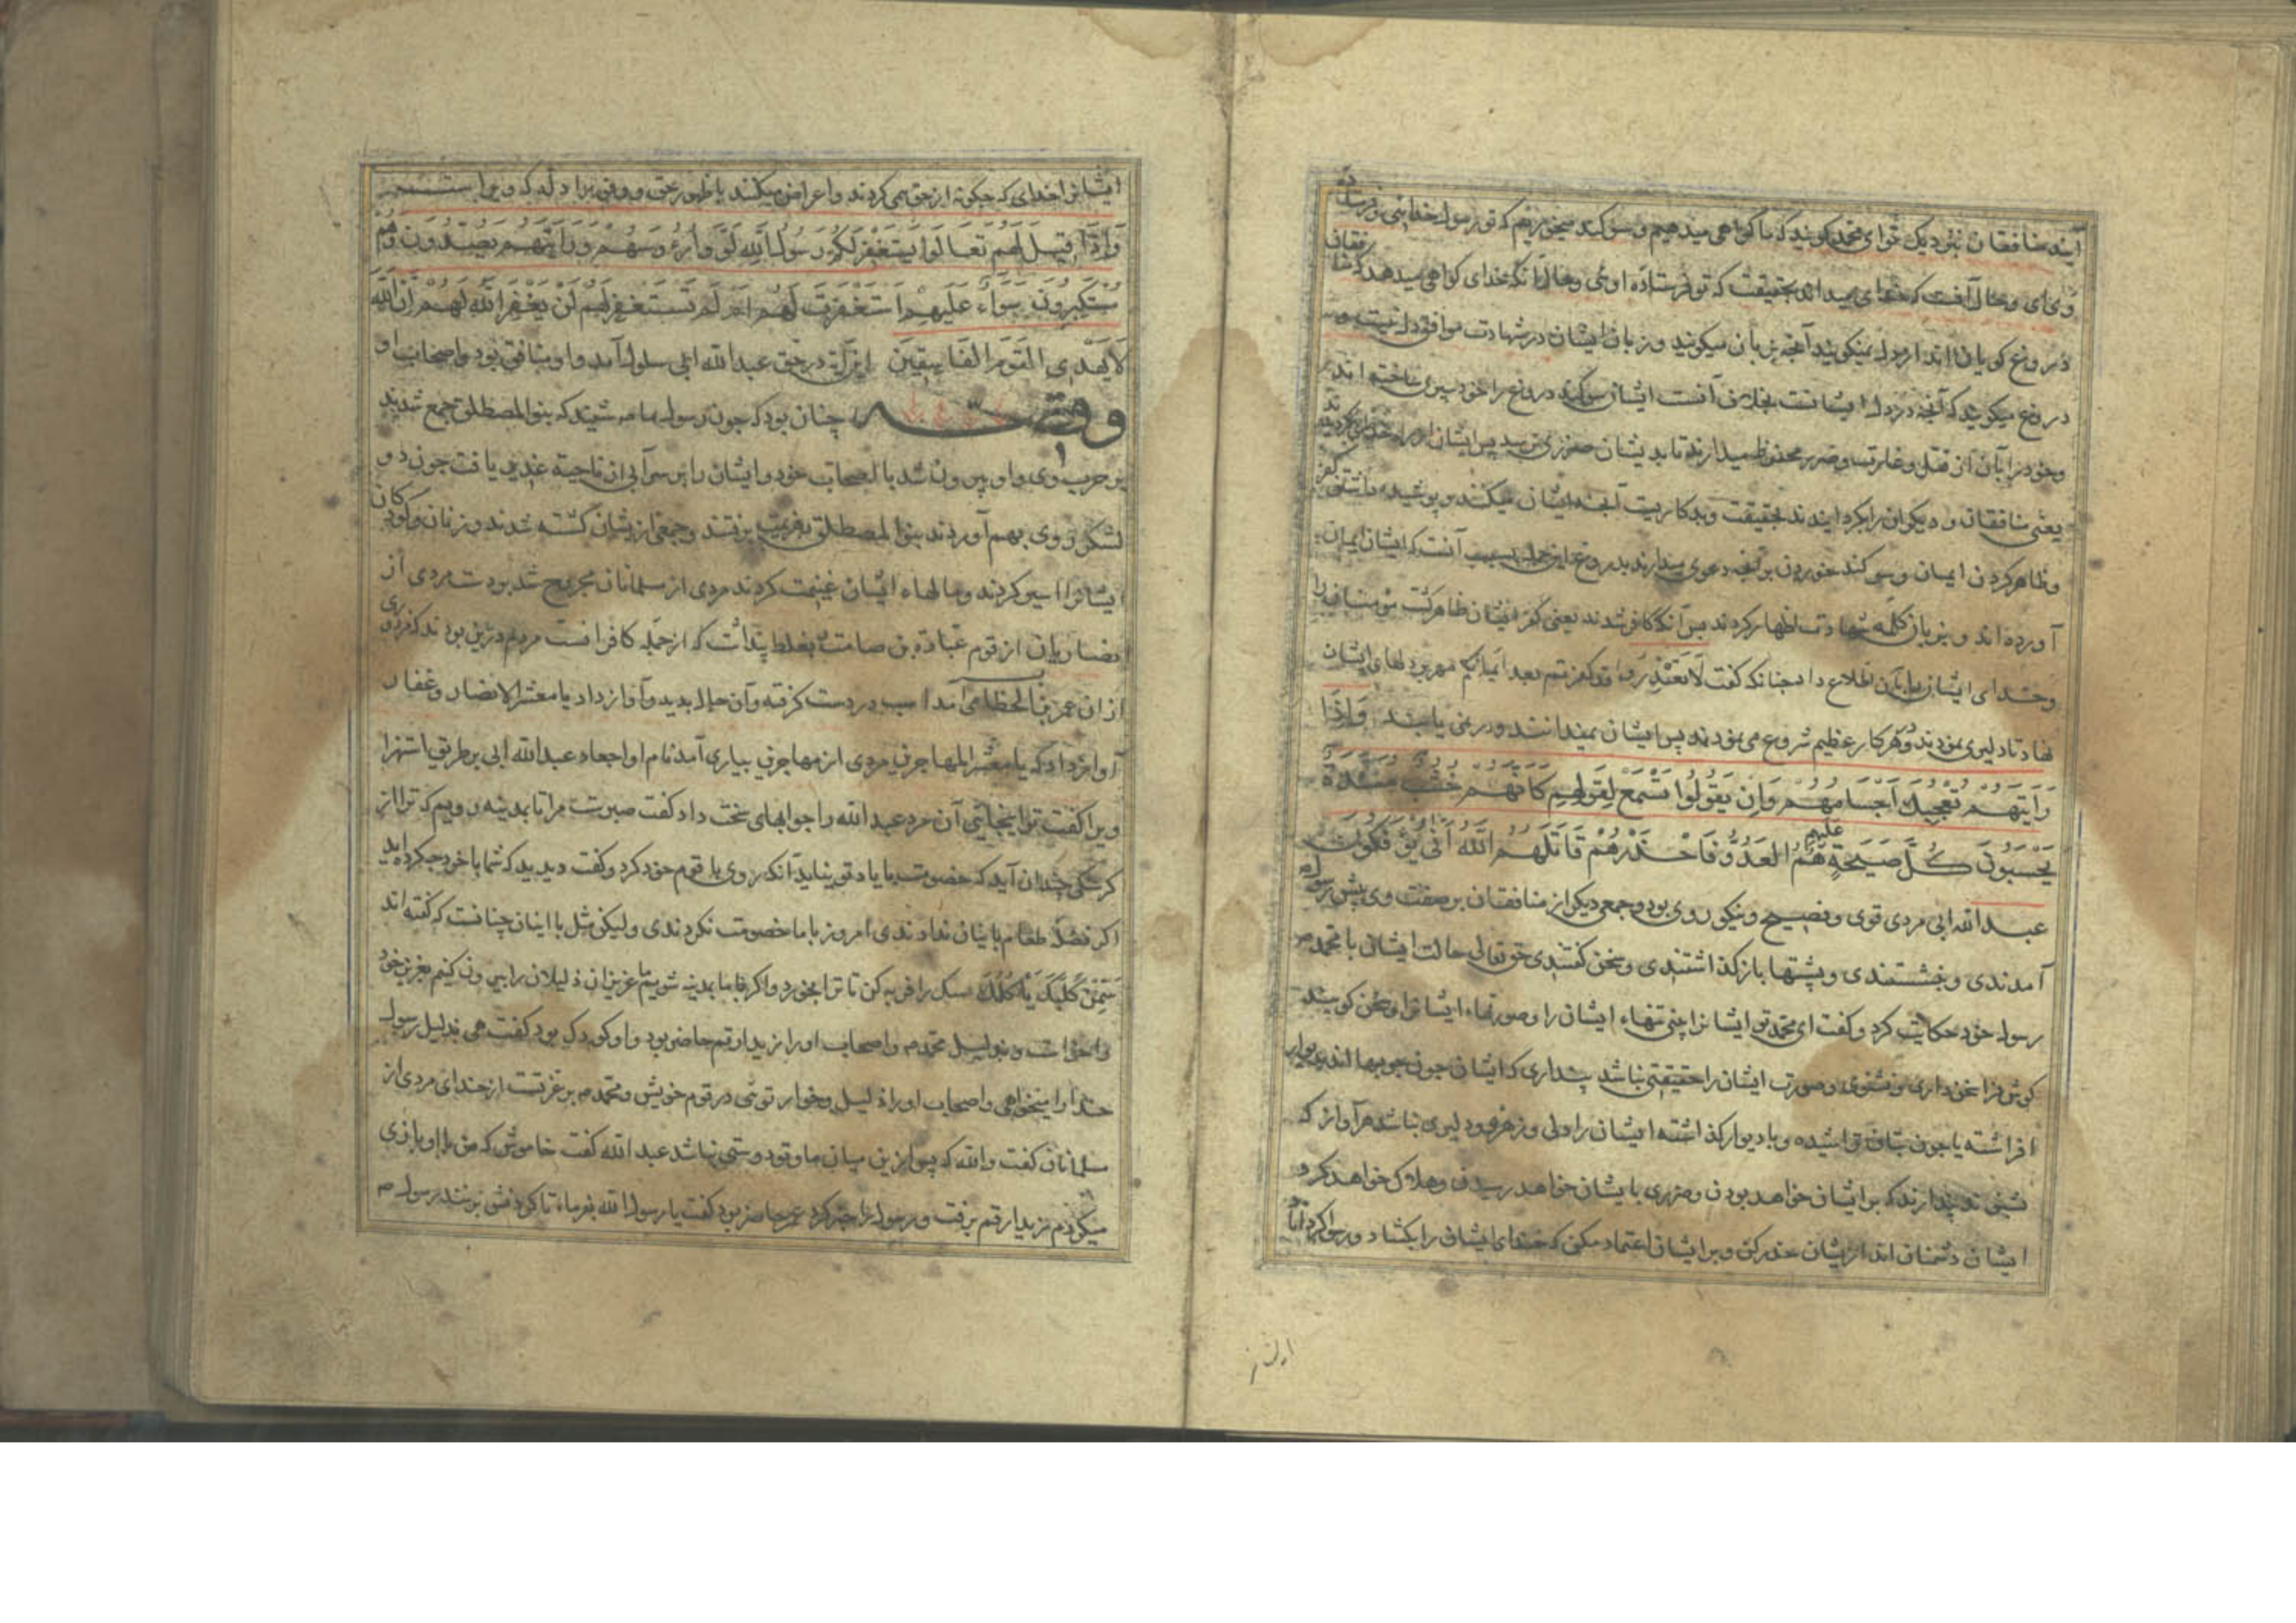 آیند منافقان بنزدیک تو ای محمد کویند که ما کواهی میدهیم و سوکند میخوریم که تو رسول خدایی و فرستاده
وی ای و خدای میداند بحقیقت که تو فرستاده اوئی و خدای کواهی میدهد که منافقان
دروغ کویان اند از دل نمیکویند آنچه بزبان میکویند و زبان ایشان در شهادت موافق دل نیست و
دروغ میکویند که آنچه در دل ایشانست بخلاف آنست ایشان سوکند دروغ را خود سپری ساخته اند
و خود را بآن از قتل و غارت و ضرر محفوظ میدارند تا بدیشان ضرری نرسد پس ایشان از راه خدای
یعنی منافقان و دیکران را بکردانیدند بحقیقت و بد کاریست آنچه ایشان میکنند و پوشیده داشتن کفر
و ظاهر کردن ایمان و سوکند خوردن بر آنچه دعوی میدارند بدروغ این جمله بسبب آنست که ایشان ایمان
آورده اند و بزبان کلمه شهادت اظهار کردند پس آنکه کافر شدند یعنی کفر ایشان ظاهر کشت
و خدای ایشان را بآن اطلاع داد چنانکه کفت لا تعتذروا قد کفرتم بعد ایمانکم مهر بر دلهای ایشان
نهاد تا دلیری نمودند و هر کار عظیم شروع می نمودند پس ایشان نمیدانند و در نمی یابند وَاِذَا
رَاَیْتَهُمْ تُعْجِبُكَ اَجْسَامُهُمْ وَاِنْ یَقُولُوا تَسْمَعْ لِقَوْلِهِمْ كَاَنَّهُمْ خُشُبٌ مُسَنَّدَةٌ
یَحْسَبُونَ كُلَّ صَیْحَةٍ عَلَیْهِمْ هُمُ الْعَدُوُّ فَاحْذَرْهُمْ قَاتَلَهُمُ اللهُ اَنّٰی یُؤْفَكُونَ
عبد الله ابی مردی قوی و فصیح و نیکو روی بود و جمعی دیکر از منافقان بر صفت وی پیش رسول
آمدندی و بنشستندی و پشتها باز کذاشتندی و سخن کفتندی حق تعالی حالت ایشان با محمد
رسول خود حکایت کرد و کفت ای محمد تو ایشانرا بینی تنهاء ایشان را و صورتهاء ایشانرا و سخن کویند
کوش فرا سخن داری و بشنوی و صورت ایشان را حقیقتی نباشد پنداری که ایشان چون چوبها اند بدیوار
افراشته یا چون بتان تراشیده و با دیوار کذاشته ایشان را دلی و زهره و دلیری نباشد هر آواز که
شنوند پندارند که بر ایشان خواهد بودن و ضرری بایشان خواهد رسیدن و هلاک خواهد کرد
ایشان دشمنان اند از ایشان حذر کن و بر ایشان اعتماد مکن که خدای ایشان را بکشاد و رسوا کرداناد
ایشانرا
ایشانرا خدای که چکونه از حق می کردند و اعراض میکنند با ظهور حق و وفور
وَاِذَا قِیلَ لَهُمْ تَعَالَوْا یَسْتَغْفِرْ لَكُمْ رَسُولُ اللهِ لَوَّوْا رُءُوسَهُمْ وَرَاَیْتَهُمْ یَصُدُّونَ وَهُمْ
مُسْتَكْبِرُونَ سَوَاءٌ عَلَیْهِمْ اَسْتَغْفَرْتَ لَهُمْ اَمْ لَمْ تَسْتَغْفِرْ لَهُمْ لَنْ یَغْفِرَ اللهُ لَهُمْ اِنَّ اللهَ
لَا یَهْدِی الْقَوْمَ الْفَاسِقِینَ این آیة در حق عبد الله ابی سلول آمد و او منافق بود و اصحاب او
وقصه چنان بود که چون رسول شنید که بنو المصطلق جمع شدند
بر حرب وی و او بیرون شد با اصحاب خود و ایشان را بر سر آبی از ناحیة یافت چون دو
لشکر روی بهم آوردند بنو المصطلق بهزیمت برفتند و جمعی از ایشان کشته شدند و زنان و کودکان
ایشانرا اسیر کردند و مالهاء ایشان غنیمت کردند مردی از مسلمانان مجروح شد بدست مردی از
انصاریان از قوم عبادة بن صامت بغلط پنداشت که از جمله کافرانست
ازان عمر بن الخطاب اسب در دست کرفته و آن حال بدید و آواز داد یا معشر الانصار و غفاری
آواز داد که یا معشر المهاجرین مردی از مهاجرین بیاری آمد نام او جعال عبد الله ابی بر طریق استهزا
ویرا کفت تو اینجائی آن مرد عبد الله را جوابهای سخت داد کفت صبرست مرا تا بمدینه رویم که ترا از
کرسنکی چندان آید که خصومت ما یادت نیاید آنکه روی با قوم خود کرد و کفت دیدید که شما با خود چه کرده اید
اکر فضل طعام باینان ندادندی امروز با ما خصومت نکردندی ولیکن مثل با اینان چنانست که کفته اند
سَمِّنْ كَلْبَكَ یَأْكُلْكَ سک را فربه کن تا ترا بخورد و اکر ما بمدینه شویم ما عزیزان ذلیلان را بیرون کنیم بعزیز خود
را خواست و بذلیل محمد و اصحاب او را زید ارقم حاضر بود و او کودک بود کفت هی بذلیل رسول
خدا را میخواهی و اصحاب او را ذلیل و خوار توئی در قوم خویش و محمد بر عزتست از خدای مردی از
مسلمانان کفت والله که پس ازین میان ما و تو دوستی نباشد عبد الله کفت خاموش که من بازی
میکردم زید ارقم برفت و رسول را خبر کرد عمر حاضر بود کفت یا رسول الله بفرماء تا کردنش بزنند رسول